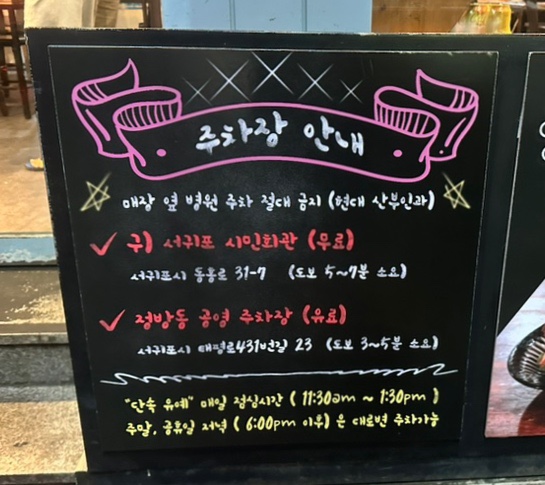 주차장 안내
매장 옆 병원 주차 절대 금지 (현대 산부인과)
구) 서귀포 시민회관 (무료)
서귀포시 동홍로 31-7 (도보 5~7분 소요)
정방동 공영 주차장 (유료)
서귀포시 태평로431번길 23 (도보 3~5분 소요)
"단속 유예" 매일 점심시간 ( 11:30am ~ 1:30pm )
주말, 공휴일 저녁 ( 6:00pm 이후) 은 대로변 주차가능